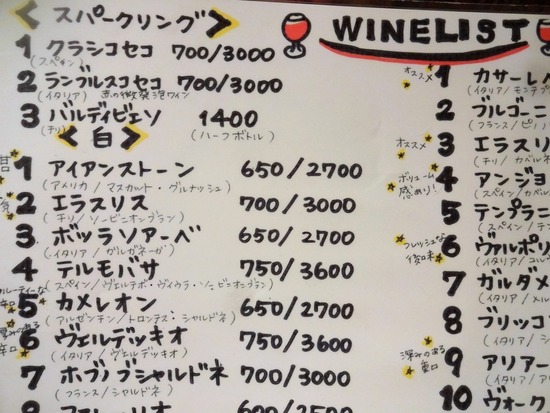 WINELIST
< スパークリング >
1 クラシコセコ 700/3000
(スペイン)
2 ランブルスコセコ 700/3000
(イタリア) 赤の微発泡ワイン
3 バルディビエソ 1400
(チリ) (ハーフボトル)
< 白 >
1 アイアンストーン 650/2700
(アメリカ / マスカット・グルナッシュ)
2 エラスリス 700/3000
(チリ / ソービニオンブラン)
3 ボッラソアーベ 650/2700
(イタリア / ガルガネーガ)
4 テルモバサ 750/3600
(スペイン / ヴェルデホ・ヴィウラ・ソービニオンブラン)
5 カメレオン 650/2700
(アルゼンチン / トロンテス・シャルドネ)
6 ヴェルデッキオ 750/3600
(イタリア / ヴェルデッキオ)
7 ホブノブシャルドネ 700/3000
(フランス / シャルドネ)
8
オススメ
1 カサーレ
(イタリア / モンテプ
2 ブルゴーニ
(フランス / ピノ
オススメ
3 エラスリ
(チリ / カベルネ
ボリューム感あり!
4 アンジョ
(スペイン / カベル
5 テンプラニ
(スペイン / テン
フレッシュな後味
6 ヴァルポリ
(イタリア / コル
7 ガルダメ
(イタリア / メル
8 ブリッコ
(イタリア /
深みのある重口
9 アリアー
(イタリア /
10 ヴォーク